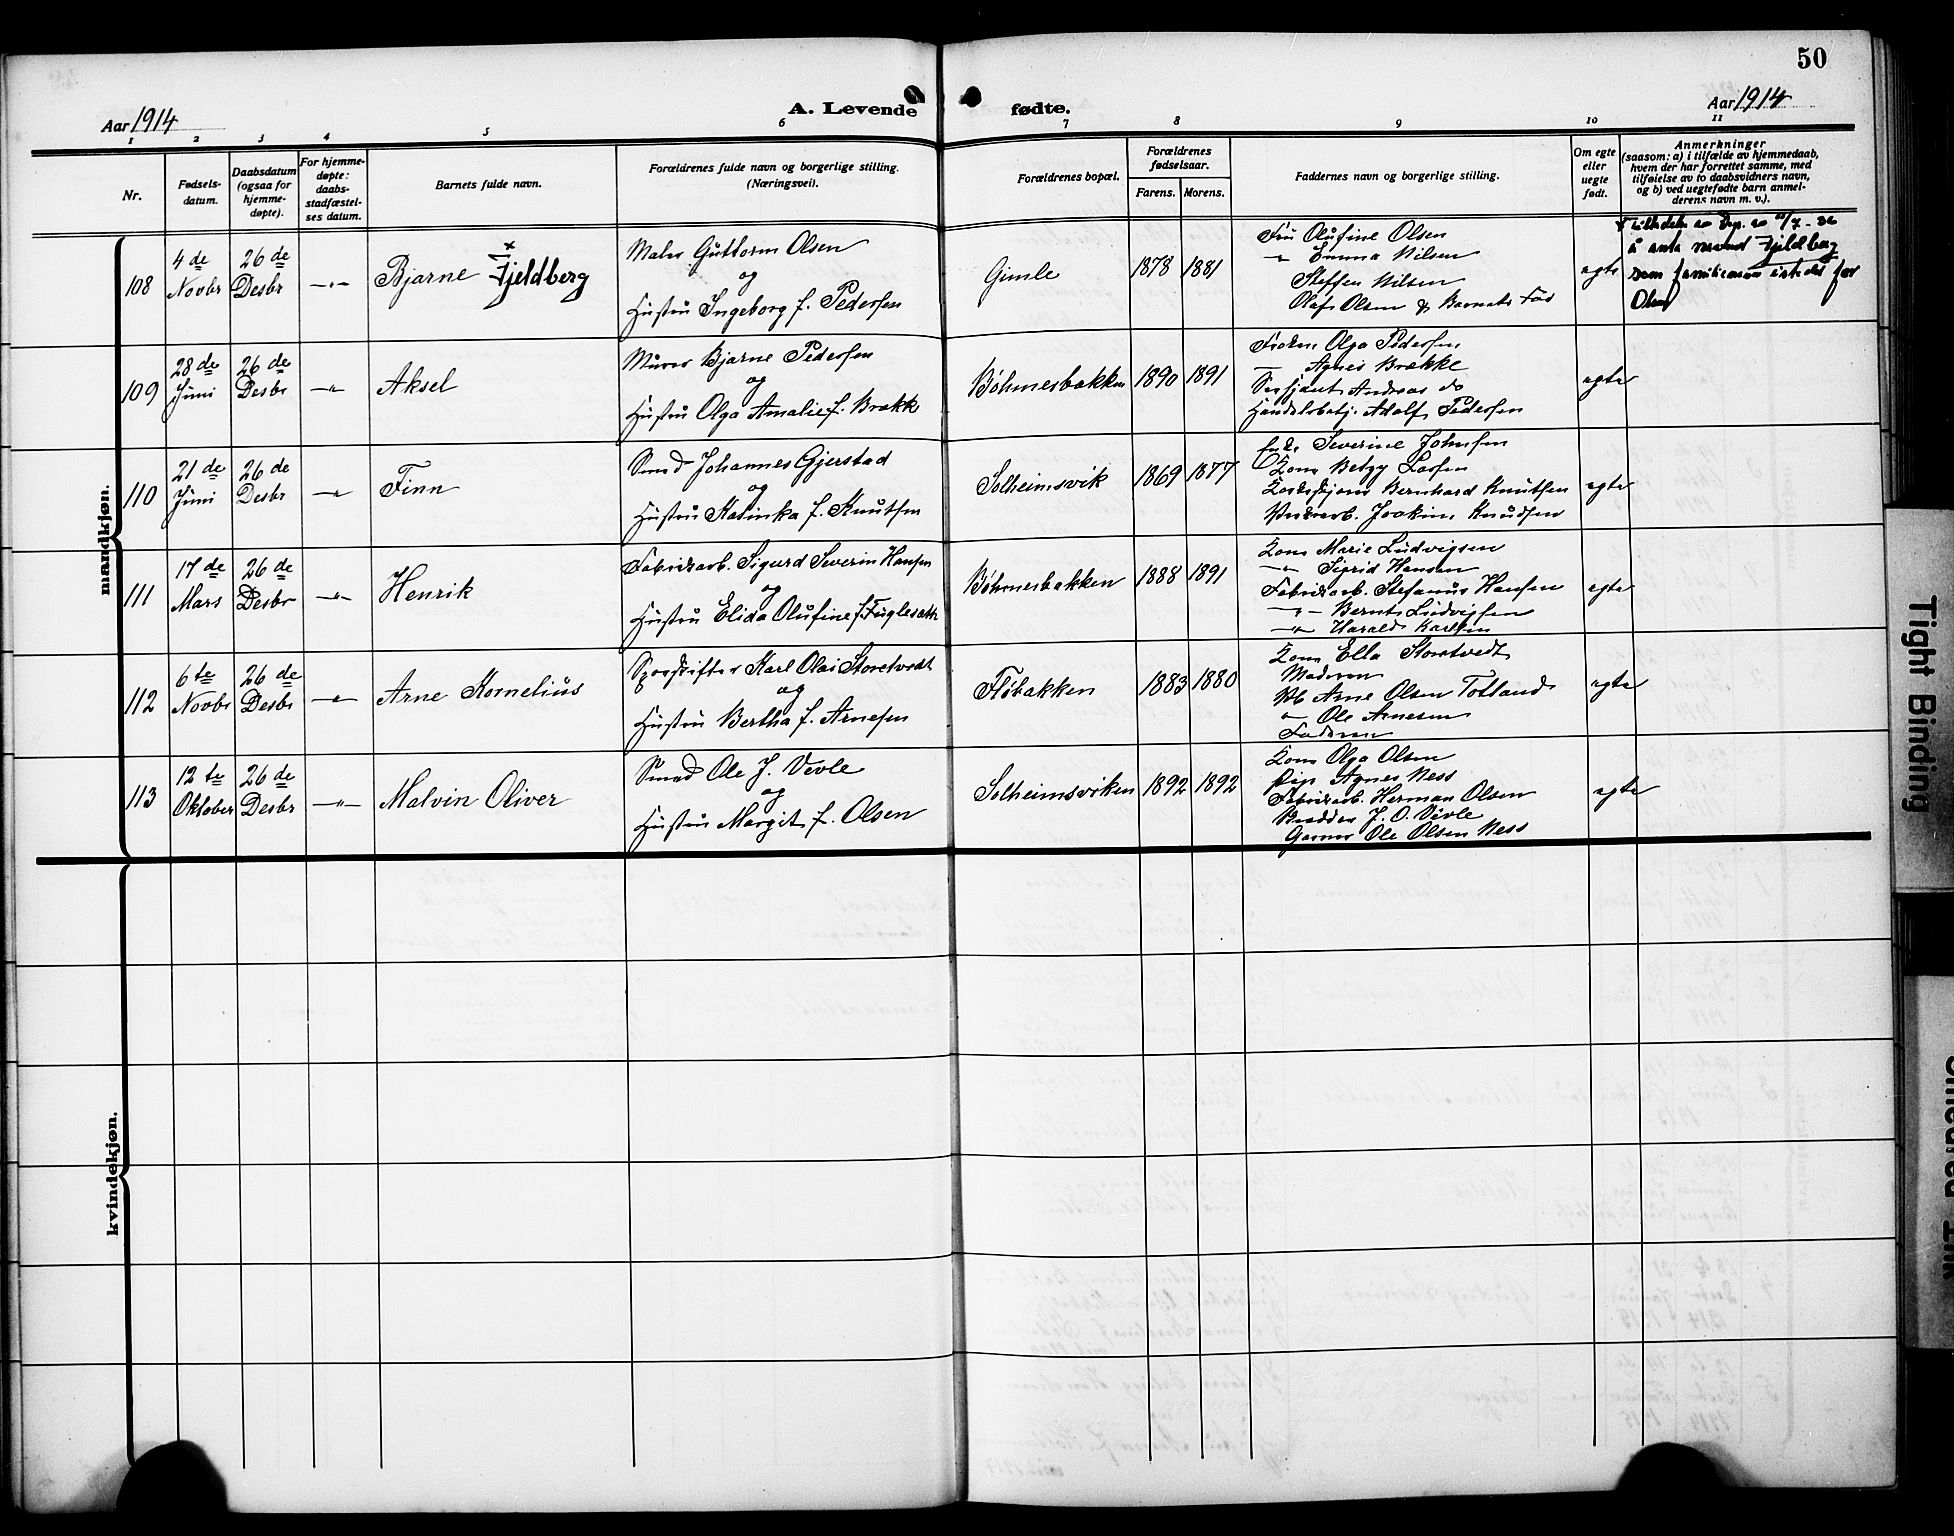 50
Aar 1914
A. Levende fødte.
Aar 1914
1 2 3 4 5 6 7 8 9 10 11
Nr.
Fødsels-
datum.
Daabsdatum
(ogsaa for
hjemme-
døpte).
For hjemme-
døpte:
daabs-
stadfæstel-
ses datum.
Barnets fulde navn.
Forældrenes fulde navn og borgerlige stilling.
(Næringsvei).
Forældrenes bopæl.
Forældrenes
fødselsaar.
Farens. Morens.
Faddernes navn og borgerlige stilling.
Om egte
eller
uegte
født.
Anmerkninger
(saasom: a) i tilfælde av hjemmedaab,
hvem der har forrettet samme, med
tilføielse av to daabsvidners navn,
og b) ved uegtefødte barn anmel-
derens navn m. v.).
mandkjøn.
108
4 de
Novbr
26 de
Desbr
—"—
Bjarne Fjeldberg
Maler Guttorm Olsen
og
Hustru Ingeborg f. Pedersen
Gimle
1878 1881
Fru Olufine Olsen
" Emma Nilsen
Steffen Nilsen
Olaf Olsen & Barnets Far
egte
å anta navnet Fjeldberg
som familienavn istedet for
Olsen
109
28 de
Juni
26 de
Desbr
—"—
Aksel
Murer Bjarne Pedersen
og
Hustru Olga Amalie f. Brækk
Bøhmerbakken
1890 1891
Frøken Olga Pedersen
— Agnes Brække
Sersjant Andreas do
Handelsbetj. Adolf Pedersen
egte
110
21 de
Juni
26 de
Desbr
—"—
Finn
Smed Johannes Gjerstad
og
Hustru Katinka f. Knutsen
Solheimsvik
1869 1877
Enke Severine Johnsen
Kone Betzy Larsen
Bernhard Knutsen
Verksarb. Joakim Knudsen
egte
111
17 de
Mars
26 de
Desbr
—"—
Henrik
Fabrikarb. Sigurd Severin Hansen
og
Hustru Elida Olufine f. Fuglesætt
Bøhmerbakken
1888 1891
Kone Marie Ludvigsen
—"— Sigrid Hansen
Fabrikarb. Stefanus Hansen
—"— Bernt Ludvigsen
—"— Harald Karlsen
egte
112
6 te
Novbr
26 de
Desbr
—"—
Arne Kornelius
Sporskifter Karl Olai Storetvedt
og
Hustru Bertha f. Arnesen
Fløbakken
1883 1880
Kone Ella Storetvedt
Moderen
Arne Olsen Totland
" Ole Arnesen
Faderen
egte
113
12 te
Oktober
26 de
Desbr
—"—
Malvin Oliver
Smed Ole J. Vevle
og
Hustru Margit f. Olsen
Solheimsviken
1892 1892
Kone Olga Olsen
Pige Agnes Ness
Fabrikarb. Herman Olsen
J. O. Vevle
Garver Ole Olsen Ness
egte
kvindekjøn.
Tight Binding